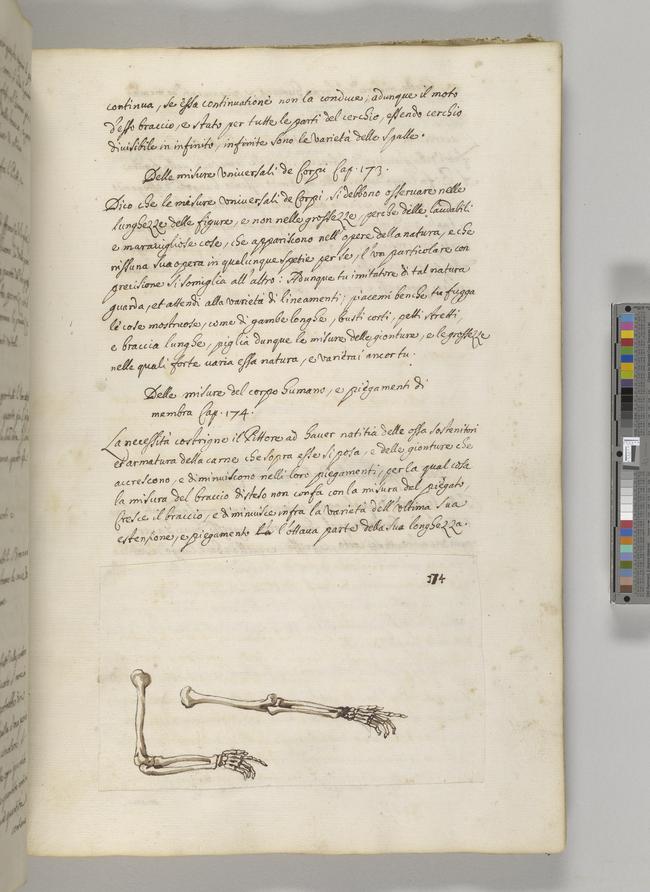 continua, se essa continuatione non la conduce, adunque il moto
d'esso braccio, e stato per tutte le parti del cerchio, essendo cerchio
divisibile in infinito, infinite sono le varietà delle spalle.
Delle misure Universali de Corpi Cap. 173.
Dico che le misure universali de Corpi, si debbono osservare nelle
lunghezze delle figure, e non nelle grossezze, perche delle laudabili
e maravigliose cose, che appariscono nell'opere della natura, e che
nissuna sua opera in qualunque spetie per se, l'un particolare con
precisione si somiglia all'altro: Adunque tu imitatore di tal natura
guarda, et attendi alla varietà di lineamenti; piacemi benche tu fugga
le cose mostruose, come di gambe longhe, busti corti, petti stretti,
e braccia lunghe, piglia dunque le misure delle gionture, e le grossezze
nelle quali forte varia essa natura, e varierai ancor tu.
Delle misure del corpo humano, e piegamenti di
membra Cap. 174.
La necessità costrigne il Pittore ad haver notitia delle ossa sostenitori
et armatura della carne che sopra esse si posa, e delle gionture che
accrescono, e diminuiscono nelli loro piegamenti, per la qual cosa
la misura del braccio disteso non confa con la misura del piegato,
Cresce il braccio, e diminuisce infra la varietà dell'ultima sua
estensione, e piegamento l'ottava parte della sua longhezza.
174